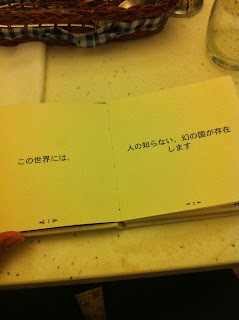 この世界には、
人の知らない、幻の国が存在
します
1
2